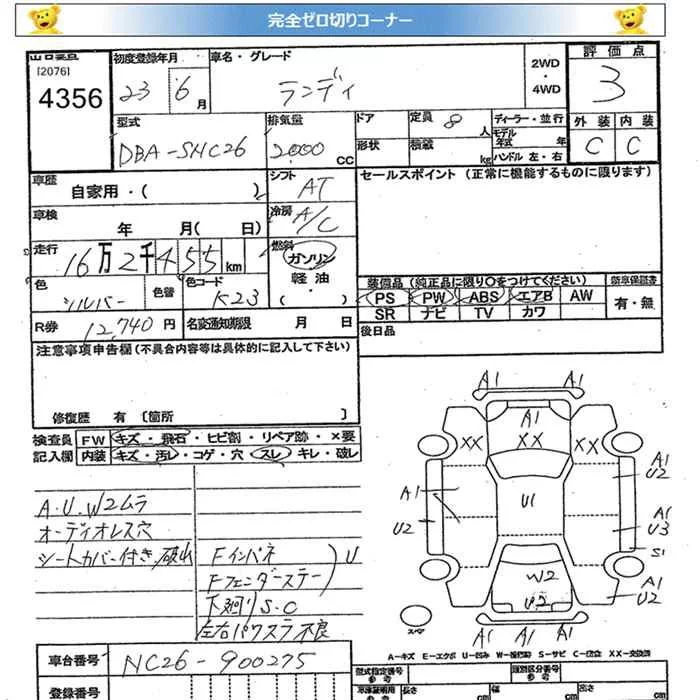 完全ゼロ切りコーナー
出口番号 初度登録年月 車名・グレード 2WD・4WD 評価点
[2076]
4356 23 6月 ランディ 3
型式 排気量 ドア 定員 8人 ディーラー・並行 外装 内装
DBA-SNC26 2000CC 形状 積載 kg モデル年式 年 ハンドル 左・右 C C
車歴 自家用・( ) シフト AT セールスポイント (正常に機能するものに限ります)
車検 年 月( 日) 冷房 A/C
走行 16万2千455km 燃料 ガソリン・軽油・( )
色 シルバー 色替 色コード K23 装備品(純正品に限り〇をつけてください) 新車保証書
PS PW ABS エアB AW 有・無
SR ナビ TV カワ
R券 12,740円 名変通知期限 月 日 後日品
注意事項申告欄(不具合内容等は具体的に記入して下さい)
修復歴 有 [箇所 ]
検査員 FW キズ・飛石・ヒビ割・リペア跡・×要
記入欄 内装 キズ・汚レ・コゲ・穴・スレ・キレ・破レ
A1 A1
A1
XX XX XX
A1 U2
A1 U2
U1
A1 U3
S1
W2
U2
A1 U2
A1 A1 A1
スペア
A.U.W2ムラ
オーディオレス穴
シートカバー付き、破出 Fインパネ U
Fフェンダーステー
下廻り S.C
左右パワステ不良
A=キズ E=エクボ U=凹み W=補修跡 S=サビ C=腐食 XX=交換済
車台番号 NC26-900275
型式指定番号 類別区分番号
登録番号 長さ cm 幅 cm 高さ cm